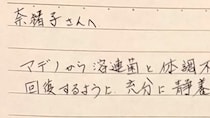 奈緒子さんへ
マデノから溶連菌と体調不
回復するように充分に静養